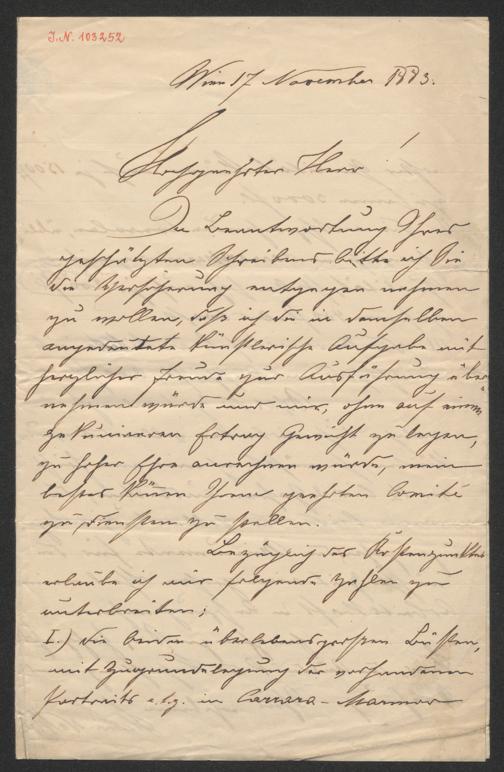 J.N. 103252
Wien 17 November 1883.
Hochgeehrter Herr!
In Beantwortung Ihres
geschätzten Schreibens bitte ich Sie
die Versicherung entgegen nehmen
zu wollen, daß ich die in demselben
angedeutete künstlerische Aufgabe mit
herzlicher Freude zur Ausführung über
nehmen würde und mir, ohne auf einen
pekuniären Ertrag Gewicht zu legen,
zu hoher Ehre anrechnen würde, mein
bestes Können Ihrem geehrten Comité
zu Diensten zu stellen.
Bezüglich des Kostenpunktes
erlaube ich mir folgende Zahlen zu
unterbreiten;
I.) die beiden überlebensgroßen Büsten,
mit Zugrundelegung der vorhandenen
Portraits in Carrara-Marmor